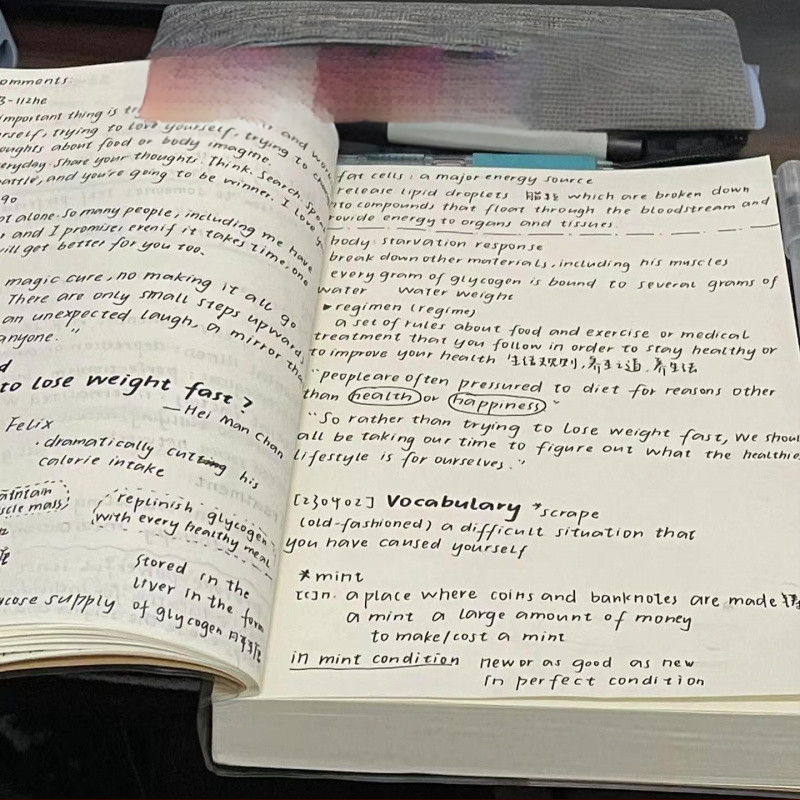 omments:
3-112he
important thing is
rself, trying to love yourself, trying to
oughts about food or body imagine.
everyday. Share your thoughts. Think. Search.
attle, and you're going to be winner. I love
go
ot alone. So many people, including me have
s and I promise: even if it takes time, one
will get better for you too.
magic cure, no making it all go
There are only small steps upward,
an unexpected laugh, a mirror tha
anyone."
d
to lose weight fast?
— Hei Man Chan
Felix
· dramatically cutting his
calorie intake
aintain
scle mass)
replinish glycogen
with every healthy meal
stored in the
liver in the form
ucose supply of glycogen
fat cells: a major energy source
release lipid droplets which are broken down
into compounds that float through the bloodstream and
rovide energy to organs and tissues.
body: starvation response
break down other materials, including his muscles
every gram of glycogen is bound to several grams of
water water weight
▸ regimen (regime)
a set of rules about food and exercise or medical
treatment that you follow in order to stay healthy or
to improve your health 生活规则, 养生之道, 养生法
"people are often pressured to diet for reasons other
than health or happiness"
"So rather than trying to lose weight fast, we shoul
all be taking our time to figure out what the healthie
lifestyle is for ourselves."
[230402] Vocabulary *scrape
(old-fashioned) a difficult situation that
you have caused yourself
*mint
[c]n. a place where coins and banknotes are made
a mint a large amount of money
to make/cost a mint
in mint condition new or as good as new
in perfect condition